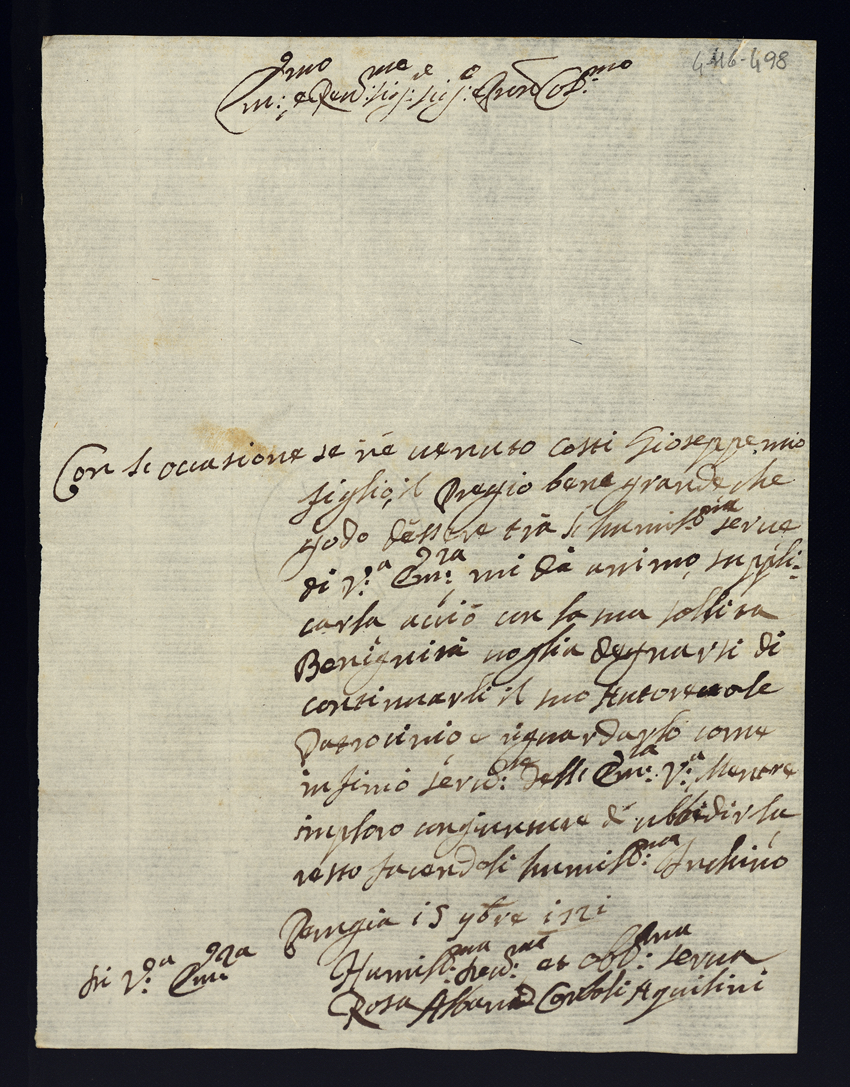 4-416-498
Em:mo e Rev:mo Sig:re Sig:e Pron Col:mo
Con l'occasione se n'è venuto costì Gioseppe mio
figlio, il Pregio bene grande che
godo d'essere trà le humiliss:me serve
di V:a Em:za mi dà animo, suppli-
carla acciò con la sua solita
Benignità voglia degnarsi di
continuarli il suo Autorevole
Patrocinio e riguardarlo come
infimo serv:re dell' Em:za V:a Mentre
imploro congiunture d' ubbidirla
resto facendoli humiliss:mo Inchino
Perugia 15 9bre 1721
di V:a Em:za
Humiliss:ma Dev:ma et obb:ma serva
Rosa Albani Conboli Aquilini